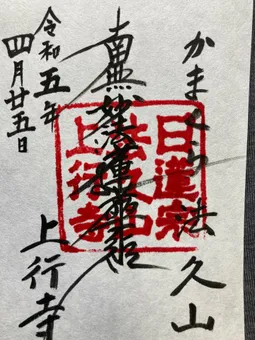 かまくら法久山
南無妙法蓮華経
令和五年
四月廿五日
上行寺
日蓮宗
上行寺